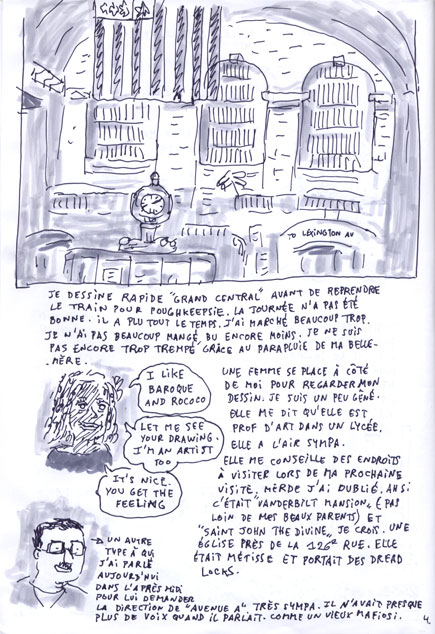 TO LEXINGTON AV
JE DESSINE RAPIDE "GRAND CENTRAL" AVANT DE REPRENDRE
LE TRAIN POUR POUGHKEEPSIE. LA JOURNÉE N'A PAS ÉTÉ
BONNE. IL A PLU TOUT LE TEMPS. J'AI MARCHÉ BEAUCOUP TROP.
JE N'AI PAS BEAUCOUP MANGÉ, BU ENCORE MOINS. JE NE SUIS
PAS ENCORE TROP TREMPÉ GRÂCE AU PARAPLUIE DE MA BELLE-
MÈRE.
I LIKE
BAROQUE
AND ROCOCO
LET ME SEE
YOUR DRAWING.
I'M AN ARTIST
TOO
IT'S NICE.
YOU GET THE
FEELING
UNE FEMME SE PLACE À CÔTÉ
DE MOI POUR REGARDER MON
DESSIN. JE SUIS UN PEU GÊNÉ.
ELLE ME DIT QU'ELLE EST
PROF D'ART DANS UN LYCÉE.
ELLE A L'AIR SYMPA.
ELLE ME CONSEILLE DES ENDROITS
À VISITER LORS DE MA PROCHAINE
VISITE, MERDE J'AI OUBLIÉ. AH SI
C'ÉTAIT "VANDERBILT MANSION", (PAS
LOIN DE MES BEAUX PARENTS) ET
"SAINT JOHN THE DIVINE", JE CROIS. UNE
ÉGLISE PRÈS DE LA 126e RUE. ELLE
ÉTAIT MÉTISSE ET PORTAIT DES DREAD
LOCKS.
UN AUTRE
TYPE À QUI
J'AI PARLÉ
AUJOURD'HUI
DANS L'APRÈS MIDI
POUR LUI DEMANDER
LA DIRECTION DE "AVENUE A" TRÈS SYMPA. IL N'AVAIT PRESQUE
PLUS DE VOIX QUAND IL PARLAIT. COMME UN VIEUX MAFIOSI.
4